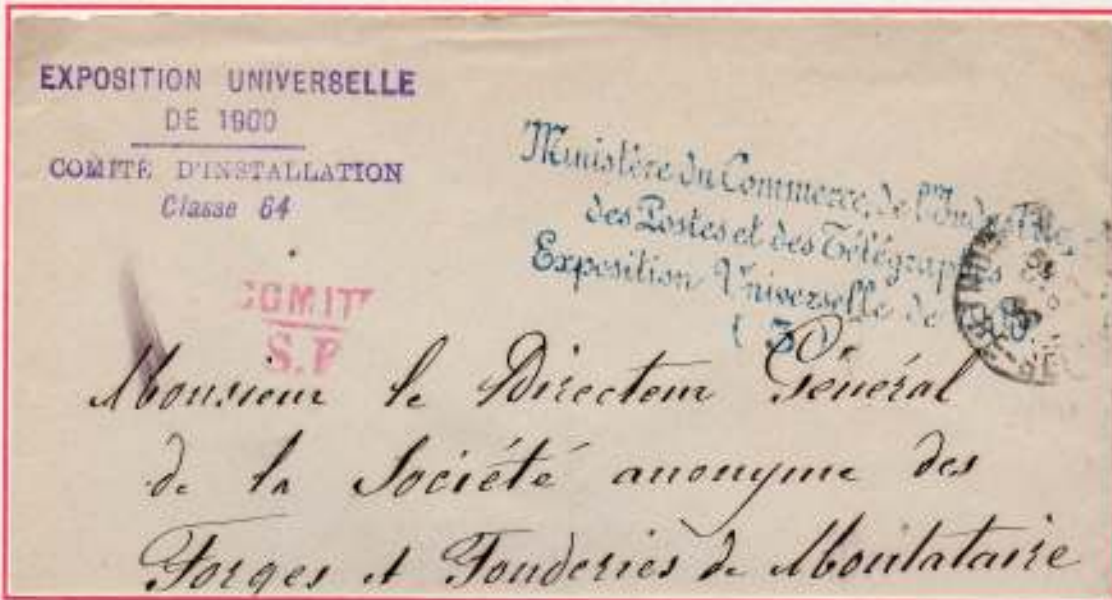 EXPOSITION UNIVERSELLE
DE 1900
COMITÉ D'INSTALLATION
Classe 64
Ministère du Commerce, de l'Industrie,
des Postes et des Télégraphes
Exposition Universelle de
COMITÉ
S.P
Monsieur le Directeur Général
de la Société anonyme des
Forges et Fonderies de Montataire